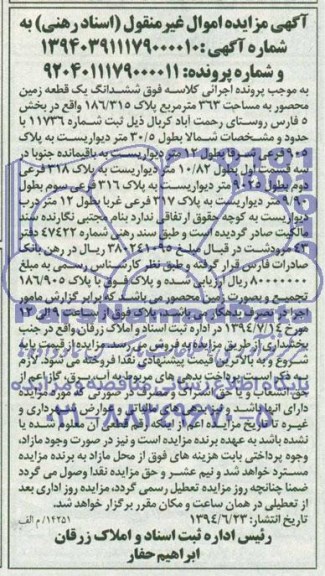 آگهی مزایده اموال غیرمنقول (اسناد رهنی) به
شماره آگهی :۱۳۹۴۰۳۹۱۱۱۷۹۰۰۰۰۱۰
و شماره پرونده: ۹۲۰۴۰۱۱۱۷۹۰۰۰۰۱۱
به موجب پرونده اجرائی کلاسه فوق ششدانگ یک قطعه زمین
محصور به مساحت ۳۶۳ مترمربع پلاک ۱۸۶/۳۱۵ واقع در بخش
۵ فارس روستای رحمت اباد کربال ذیل ثبت شماره ۱۱۷۳۶ با
حدود و مشخصات شمالا بطول ۳۰/۵ متر دیواریست به پلاک
۹۰۵ فرعی شرقا بطول ۱۲ متر دیواریست به باقیمانده جنوبا در
سه قسمت اول بطول ۱۰/۸۲ متر دیواریست به پلاک ۳۱۸ فرعی
دوم بطول ۹/۲۵ متر دیواریست به پلاک ۳۱۶ فرعی سوم بطول
۹/۹۰ متر دیواریست به پلاک ۳۱۷ فرعی غربا بطول ۱۲ متر درب
دیواریست به کوچه حقوق ارتفاقی ندارد بنام مجتبی نگارنده سند
مالکیت صادر گردیده است و طبق سند رهنی شماره ۴۷۴۲۲ دفتر
۴۳ مرودشت در قبال مبلغ ۳۸۰۲۴۱۰۹۵ ریال در رهن بانک
صادرات فارس قرار گرفته و طبق نظر کارشناس رسمی به مبلغ
ریال ارزیابی شده و پلاک فوق با پلاک ۱۸۶/۹۰۵
تجمیع و بصورت زمین محصور می باشد که برابر گزارش مامور
اجرا در تصرف بدهکار می باشد پلاک فوق از ساعت ۹ الی ۱۲
مورخ ۱۳۹۴/۷/۱۴ در اداره ثبت اسناد و املاک زرقان واقع در جنب
بخشداری از طریق مزایده به فروش می رسد مزایده از قیمت پایه
شروع و به بالاترین قیمت پیشنهادی نقدا فروخته می شود. لازم
به ذکر است پرداخت بدهی های مربوط به آب، برق، گاز اعم از
حق انشعاب و یا حق اشتراک و مصرف در صورتی که مورد مزایده
دارای آنها باشد و نیز بدهی های مالیاتی و عوارض شهرداری و
غیره تا تاریخ مزایده اعم از اینکه رقم قطعی آن معلوم شده یا
نشده باشد به عهده برنده مزایده است و نیز در صورت وجود مازاد،
وجوه پرداختی بابت هزینه های فوق از محل مازاد به برنده مزایده
مسترد خواهد شد و نیم عشر و حق مزایده نقدا وصول می گردد
ضمنا چنانچه روز مزایده تعطیل رسمی گردد، مزایده روز اداری بعد
از تعطیلی در همان ساعت و مکان مقرر برگزار خواهد شد.
تاریخ انتشار: ۱۳۹۴/۶/۲۳
۱۴۲۵۱/م الف
رئیس اداره ثبت اسناد و املاک زرقان
ابراهیم حفار
پایگاه اطلاع رسانی مناقصه و مزایده
۰۲۱-۸۸۳۴۹۶۷۰-۵